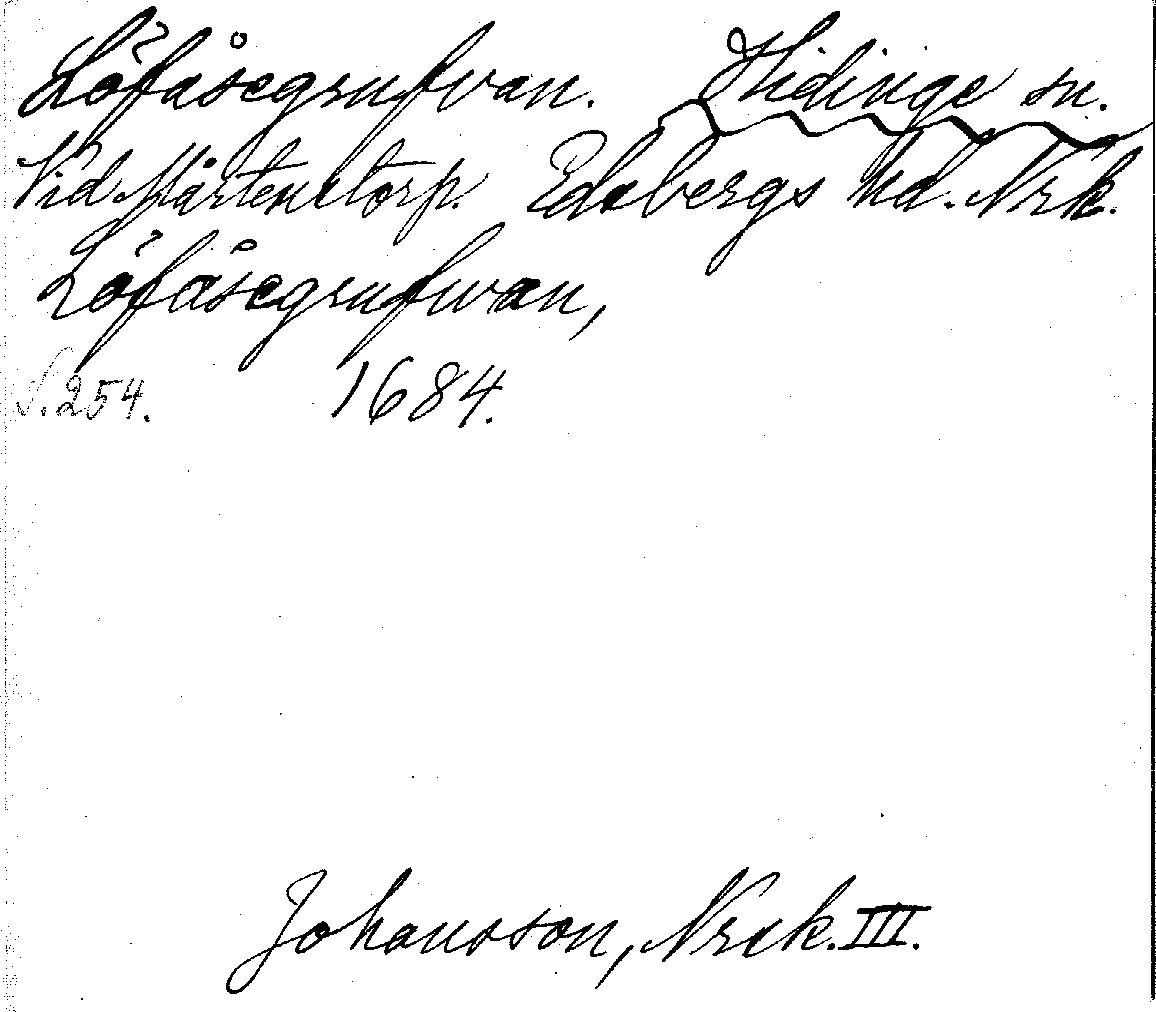 Löfåsegrufvan. Hidinge sn.
Vid Mårtenstorp. Edsbergs hd. Nrk.
Löfåsegrufwan,
S. 254. 1684.
Johansson, Nrck. III.